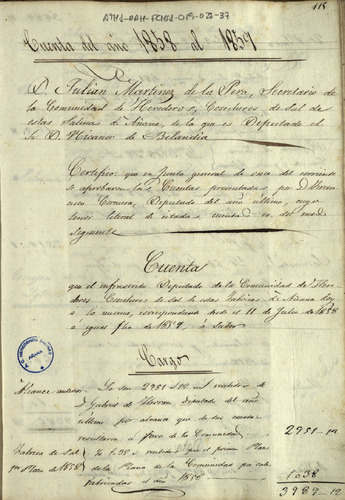 ATHA-DAH-FCHSA-019-023-37
118
Cuenta del año 1858 al 1859
D. Julian Martinez de la Pera, Secretario de
la Comunidad de Herederos, Cosecheros de Sal de
estas Salinas de Añana, de la que es Diputado el
Sr. D. Nicanor de Belandia
Certifico: que en Junta general de once del corriente
se aprobaron las Cuentas presentadas por D.
Diputado del año último, cuyo
tenor literal de citadas cuentas es del modo
siguiente
Cuenta
que el infrascrito Diputado de la Comunidad de Here
deros Cosecheros de Sal de estas Fabricas de Añana doy
á la misma, correspondiente desde el 11 de Julio de 1858
á igual fha de 1859, á saber
Cargo
Alcance anterior
Lo son 2951 rs 12 ms recibidos de
Gabriel de Herran, diputado del año
último por alcance que de sus cuentas
resultaron á favor de la Comunidad
2951-12
Fabrica de Sal
pr Plaz de 1858
Yt 1038 recibidos por el primer Plazo
de la de la Comunidad por sales
fabricadas el año 1858
1038
3989-12
AÑANA